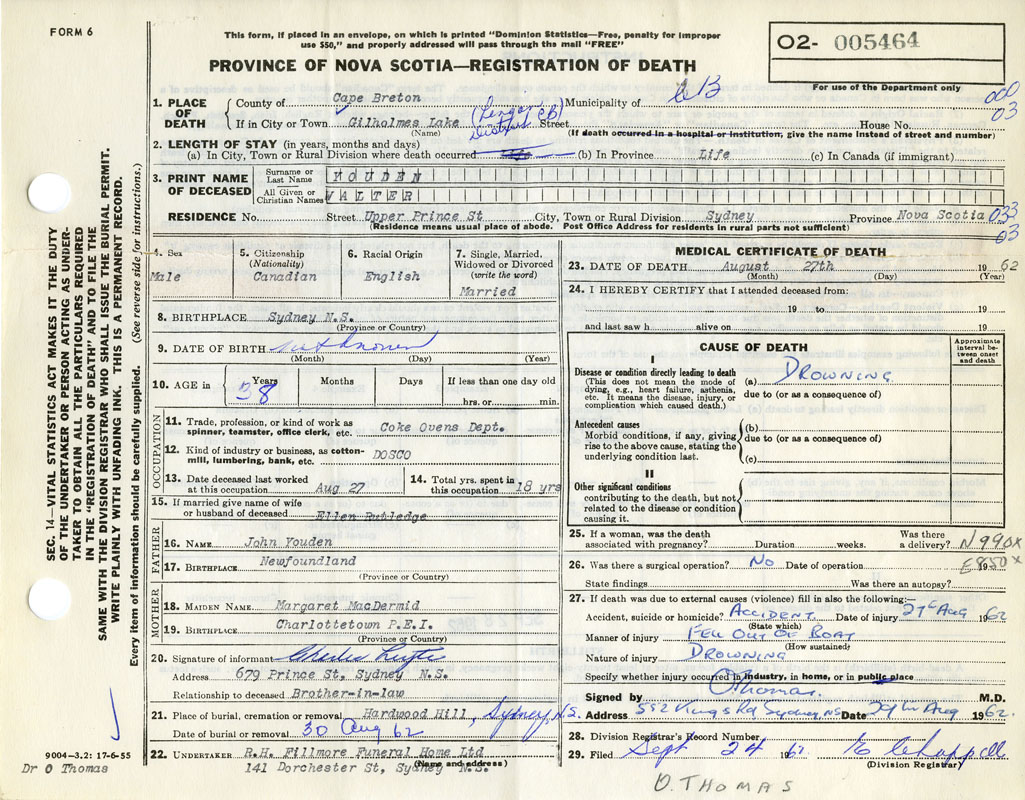 FORM 6
This form, if placed in an envelope, on which is printed "Dominion Statistics—Free, penalty for improper
use $50," and properly addressed will pass through the mail "FREE"
PROVINCE OF NOVA SCOTIA—REGISTRATION OF DEATH
O2- 005464
For use of the Department only
000
03
1. PLACE OF DEATH { County of Cape Breton Municipality of CB
If in City or Town Gilholmes Lake C.B) Street House No.
(Name) (If death occurred in a hospital or institution, give the name instead of street and number)
2. LENGTH OF STAY (in years, months and days)
(a) In City, Town or Rural Division where death occurred Life (b) In Province Life (c) In Canada (if immigrant)
3. PRINT NAME OF DECEASED { Surname or Last Name YOUDEN
All Given or Christian Names WALTER
RESIDENCE No. Street Upper Prince St City, Town or Rural Division Sydney Province Nova Scotia 033
(Residence means usual place of abode. Post Office Address for residents in rural parts not sufficient) 03
4. Sex 5. Citizenship (Nationality) 6. Racial Origin 7. Single, Married, Widowed or Divorced (write the word)
Male Canadian English Married
8. BIRTHPLACE Sydney N.S.
(Province or Country)
9. DATE OF BIRTH not known
(Month) (Day) (Year)
10. AGE in Years Months Days If less than one day old
38 hrs. or min.
OCCUPATION
11. Trade, profession, or kind of work as spinner, teamster, office clerk, etc. Coke Ovens Dept.
12. Kind of industry or business, as cotton-mill, lumbering, bank, etc. DOSCO
13. Date deceased last worked at this occupation Aug 27 14. Total yrs. spent in this occupation 18 yrs
15. If married give name of wife or husband of deceased Ellen Rutledge
FATHER
16. NAME John Youden
17. BIRTHPLACE Newfoundland
(Province or Country)
MOTHER
18. MAIDEN NAME Margaret MacDermid
19. BIRTHPLACE Charlottetown P.E.I.
(Province or Country)
20. Signature of informant Charles
Address 679 Prince St, Sydney N.S.
Relationship to deceased Brother-in-law
21. Place of burial, cremation or removal Hardwood Hill, Sydney, N.S.
Date of burial or removal 30 Aug 62
22. UNDERTAKER R.H. Fillmore Funeral Home Ltd
(Name and address)
141 Dorchester St, Sydney N.S.
MEDICAL CERTIFICATE OF DEATH
23. DATE OF DEATH August 27th 1962
(Month) (Day) (Year)
24. I HEREBY CERTIFY that I attended deceased from:
19 to 19
and last saw h alive on 19
CAUSE OF DEATH
Approximate interval between onset and death
I
Disease or condition directly leading to death (a) DROWNING
(This does not mean the mode of dying, e.g., heart failure, asthenia, etc. It means the disease, injury, or complication which caused death.)
due to (or as a consequence of)
Antecedent causes (b)
Morbid conditions, if any, giving rise to the above cause, stating the underlying condition last.
due to (or as a consequence of)
(c)
II
Other significant conditions
contributing to the death, but not related to the disease or condition causing it.
25. If a woman, was the death associated with pregnancy? Duration weeks. Was there a delivery? N990X
26. Was there a surgical operation? No Date of operation 19 E850X
State findings Was there an autopsy?
27. If death was due to external causes (violence) fill in also the following:—
Accident, suicide or homicide? ACCIDENT. Date of injury 27 Aug 1962
(State which)
Manner of injury FELL OUT OF BOAT
(How sustained)
Nature of injury DROWNING
Specify whether injury occurred in industry, in home, or in public place
Signed by OThomas. M.D.
Address 552 Kings Rd Sydney NS Date 29th Aug 1962.
28. Division Registrar's Record Number
29. Filed Sept 24 196 Chappell
(Division Registrar)
O. THOMAS
SEC. 14—VITAL STATISTICS ACT MAKES IT THE DUTY
OF THE UNDERTAKER OR PERSON ACTING AS UNDER-
TAKER TO OBTAIN ALL THE PARTICULARS REQUIRED
IN THE "REGISTRATION OF DEATH" AND TO FILE THE
SAME WITH THE DIVISION REGISTRAR WHO SHALL ISSUE THE BURIAL PERMIT.
WRITE PLAINLY WITH UNFADING INK. THIS IS A PERMANENT RECORD.
Every item of information should be carefully supplied. (See reverse side for instructions.)
9004—3.2: 17-6-55
Dr O Thomas